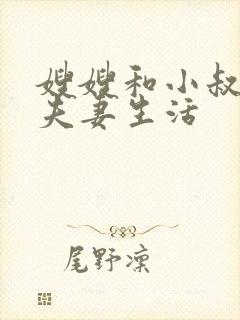 嫂嫂和小叔
夫妻生活
尾野凛